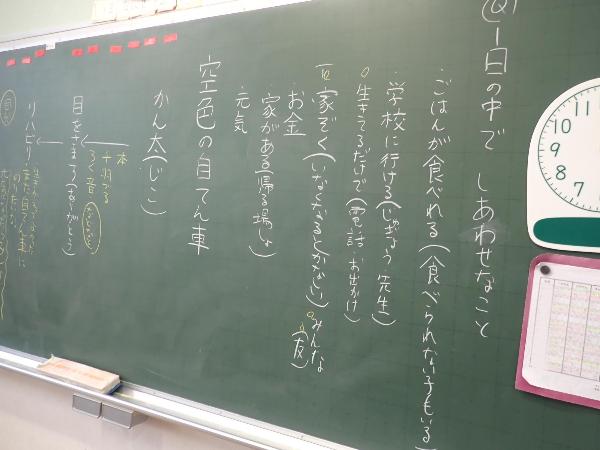 Q 1日の中で しあわせなこと
・ごはんが食べれる(食べられない子もいる)
・学校に行ける(じゅぎょう 先生)
・生きてるだけで(電話・お出かけ)
家ぞく(いなくなるとかなしい) みんな(友)
お金
家がある(帰る場しょ)
元気
空色の自てん車
かん太(じこ)
本
ろく音
目をさまう(ありがとう)
リハビリ
また自てん車に
のりたいな
11
10
9
8
7